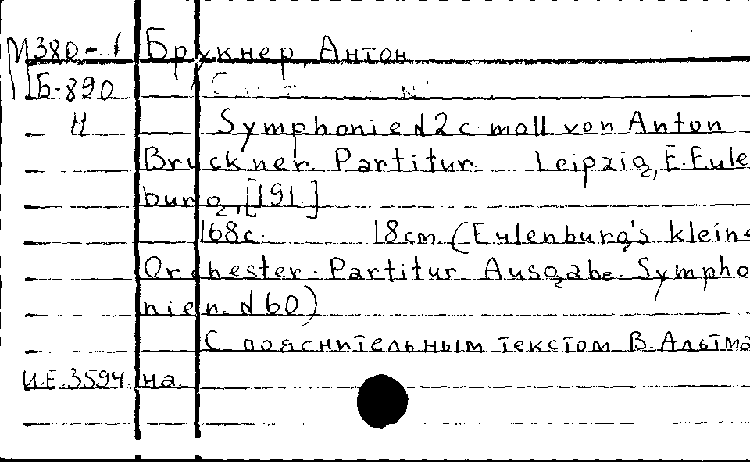 М380-1 Брукнер, Антон
Б-890
И Symphonie N2 c moll von Anton
Bruckner. Partitur. Leipzig, E. Eule
burg, [191 ]
168с. 18cm (Eulenburg's kleine
Orchester-Partitur Ausgabe. Sympho
nien. N 60)
С пояснительным текстом В. Альтма
И.Е. 3594 на